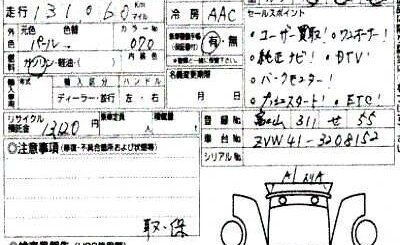 走行 131,060 Kmマイル
冷房 AAC
セールスポイント
外色 元色 色替 カラーNo
パール 070
有・無
・ユーザー買取! ・ワンオーナー!
ガソリン・軽油・( ) 内装色
・純正ナビ! ・DTV!
名義変更期限
・バックモニター!
輸入車 輸入車区分 ハンドル
ディーラー・並行 左・右
月 日
・プッシュスタート! ・ETC!
リサイクル預託金 13,120 円 乗車定員 人 積載量
登録No 富山 311 せ 55
車台No ZVW41-3208152
シリアルNo
◎注意事項 (修復・不具合箇所および状態等)
A1
取・保